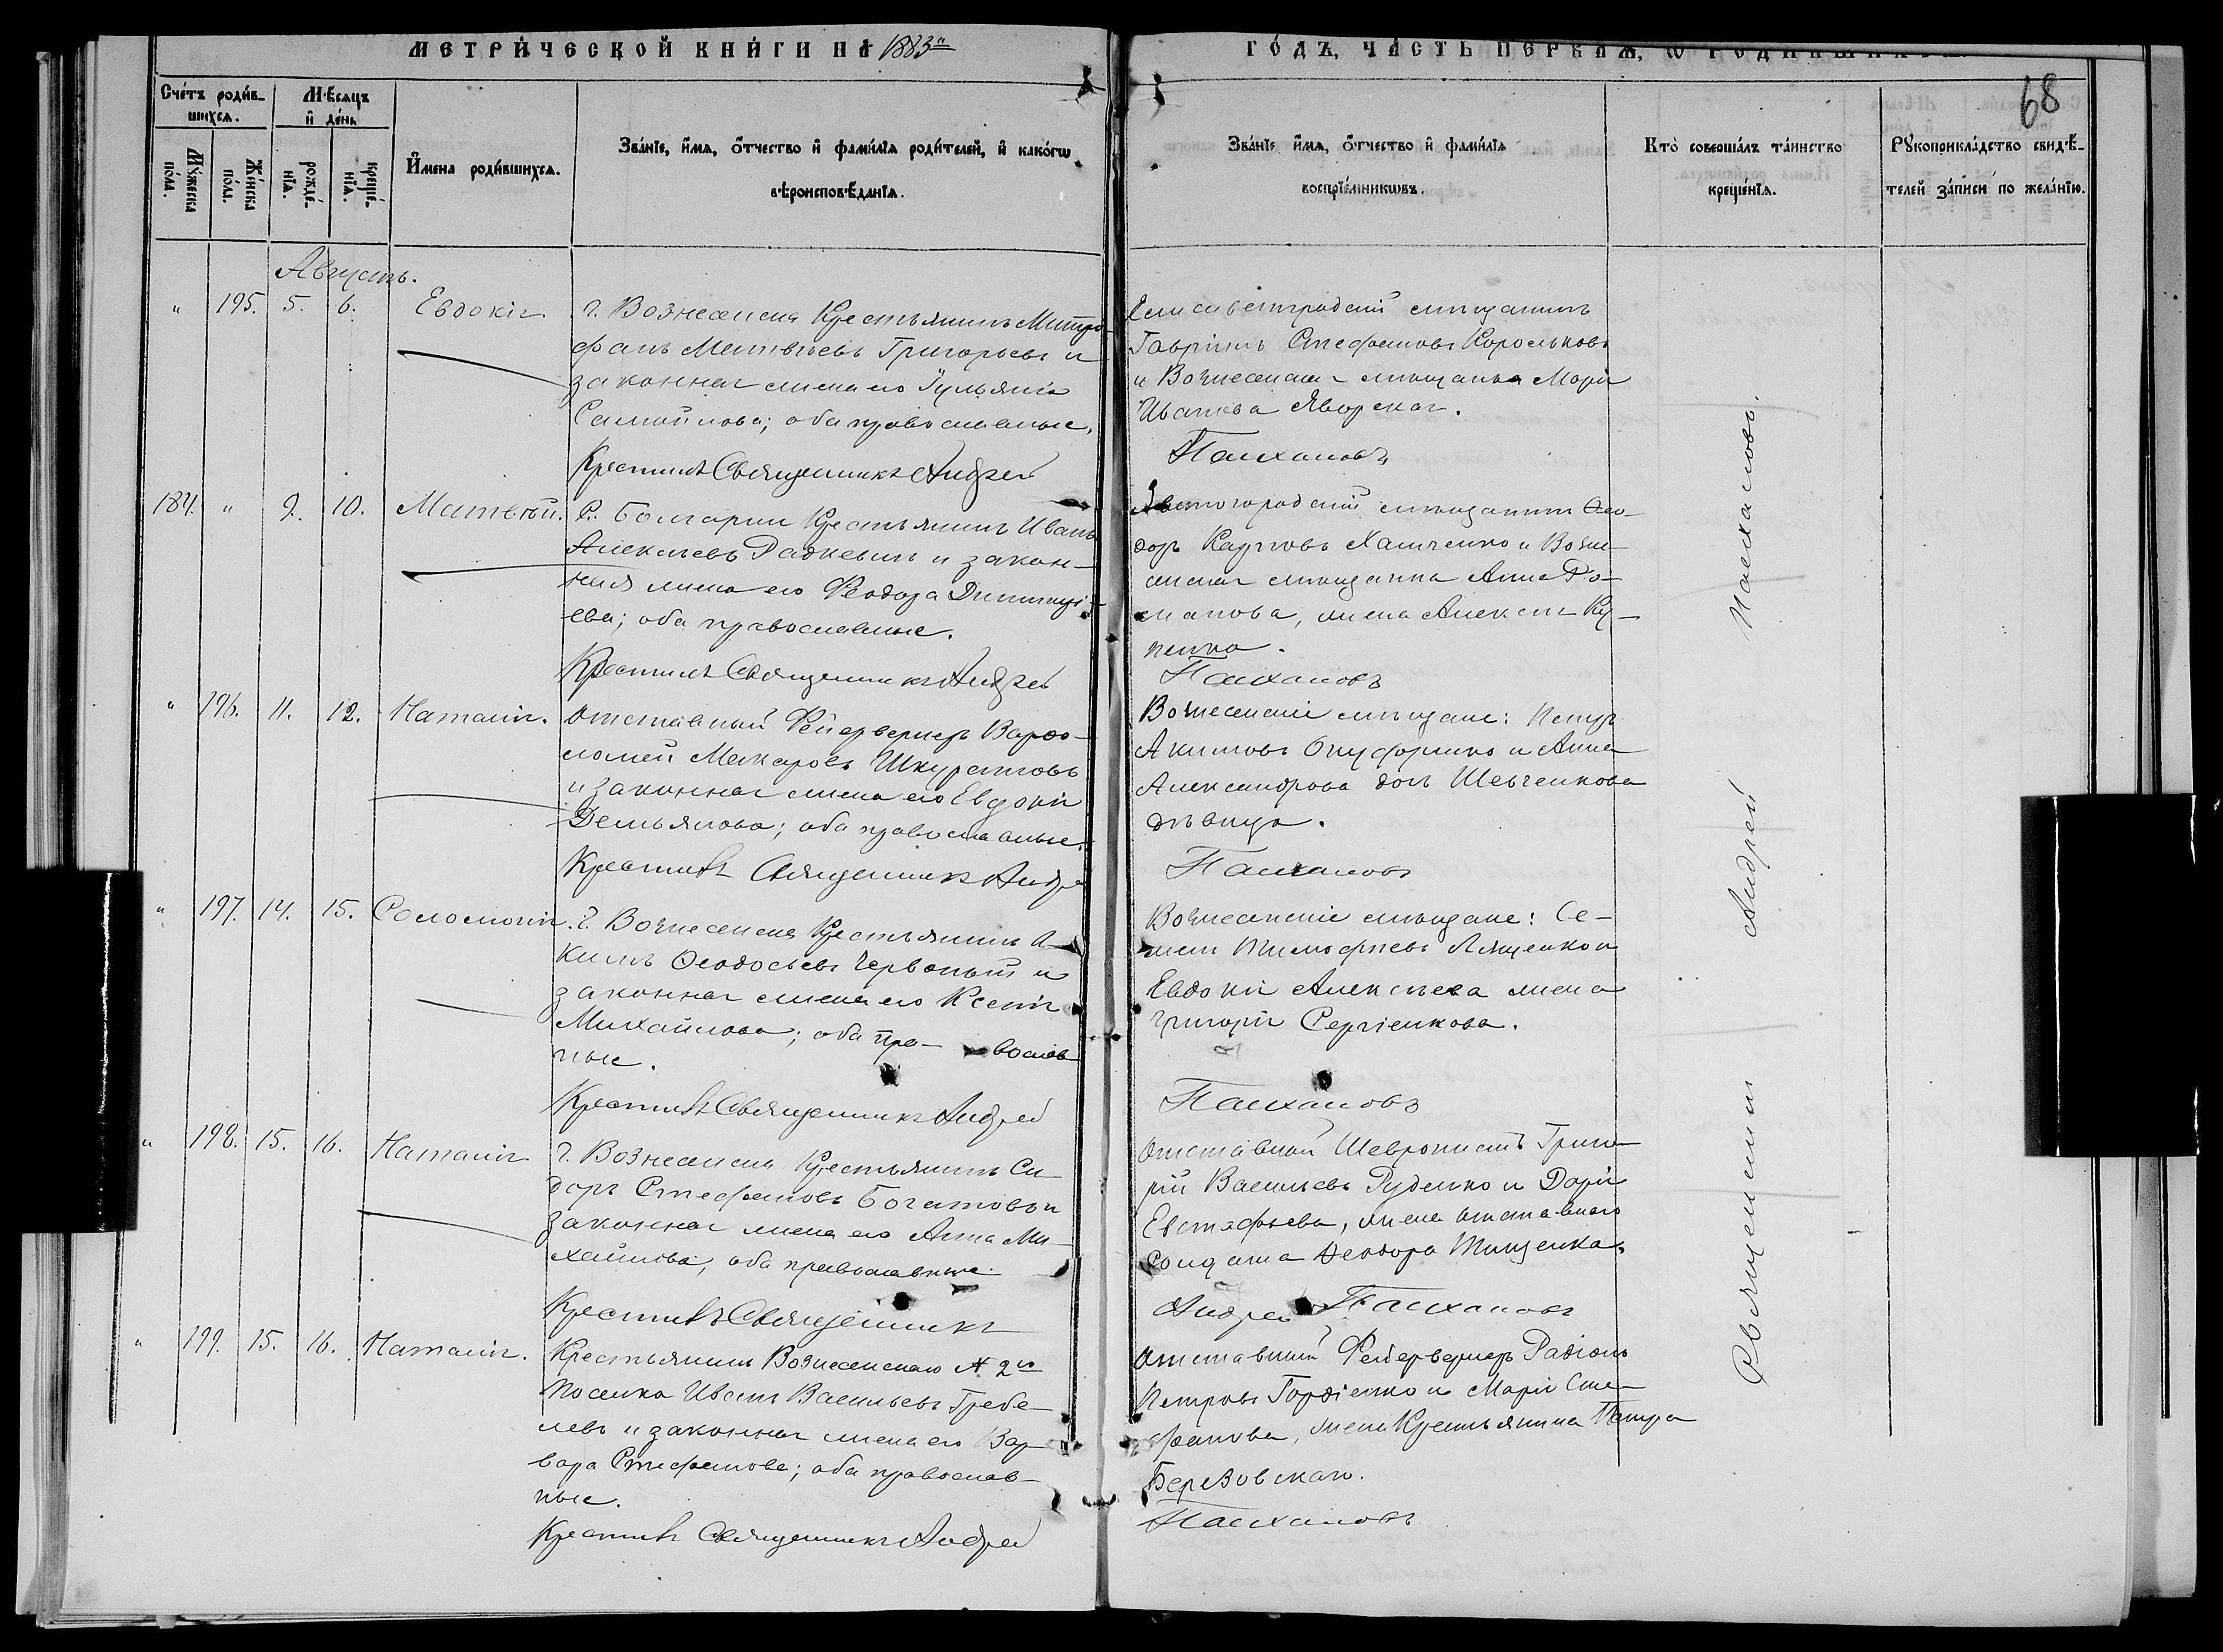 МЕТРИЧЕСКОЙ КНИГИ НА 1883й
ГОДЪ, ЧАСТЬ ПЕРВАЯ, О РОДИВШИХСЯ.
68
Счетъ родив-
шихся.
Мѣсяцъ
и день
Мужеска
пола.
Женска
пола.
рожде-
нія.
креще-
нія.
Имена родившихся.
Званіе, имя, отчество и фамилія родителей, и какого
вѣроисповѣданія.
Званіе имя, отчество и фамилія
воспріемниковъ.
Кто совершалъ таинство
крещенія.
Рукоприкладство свидѣ-
телей записи по желанію.
Августъ.
" 195. 5. 6. Евдокія.
г. Вознесенска Крестьянинъ Митро-
фанъ Матвѣевъ Григорьевъ и
законная жена его Іульянія
Самойлова; оба православные.
Крестилъ Священникъ Андрей
Елисаветградскій мѣщанинъ
Гавріилъ Стефановъ Корольковъ
и Вознесенская мѣщанка Марія
Иванова Яворская.
Пасхаловъ
184. " 9. 10. Матвѣй.
С. Болгарки Крестьянинъ Иванъ
Алексѣевъ Радкевичъ и закон-
ная жена его Феодора Димитрі-
ева; оба православные.
Крестилъ Священникъ Андрей
мѣщанинъ Ѳео-
доръ Карповъ Халченко и Возне-
сенская мѣщанка Анна Ро-
манова, жена Алексѣя Ку-
пенко.
Пасхаловъ
" 196. 11. 12. Наталія.
Отставный Фейерверкеръ Варѳо-
ломей Макаровъ Шкуратовъ
и законная жена его Евдокія
Демьянова; оба православные.
Крестилъ Священникъ Андрей
Вознесенскіе мѣщане: Петръ
Акимовъ Онуфріенко и Анна
Александрова дочь Шевченкова
дѣвица.
Пасхаловъ
" 197. 14. 15. Соломонія.
г. Вознесенска Крестьянинъ А-
кимъ Ѳеодосьевъ Червоный и
законная жена его Ксенія
Михайлова; оба пра- вослав
ные.
Крестилъ Священникъ Андрей
Вознесенскіе мѣщане: Се-
менъ Тимофѣевъ Лященко и
Евдокія Алексѣева жена
Григорія Сергіенкова.
Пасхаловъ
" 198. 15. 16. Наталія.
г. Вознесенска Крестьянинъ Си-
доръ Стефановъ Богатовъ и
законная жена его Анна Ми-
хайлова, оба православные.
Крестилъ Священникъ
Отставной Шевронистъ Григо-
рій Васильевъ Руденко и Дарія
Евстафьева, жена отставного
солдата Феодора Тищенка.
Андрей Пасхаловъ
" 199. 15. 16. Наталія.
Крестьянинъ Вознесенскаго № 2го
поселка Иванъ Васильевъ Гребе-
левъ и законная жена его Вар-
вара Стефанова; оба православ-
ные.
Крестилъ Священникъ Андрей
Отставный Фейерверкеръ Радіонъ
Петровъ Гордіенко и Марія Сте-
фанова, жена Крестьянина Петра
Березовскаго.
Пасхаловъ
Священникъ Андрей Пасхаловъ.